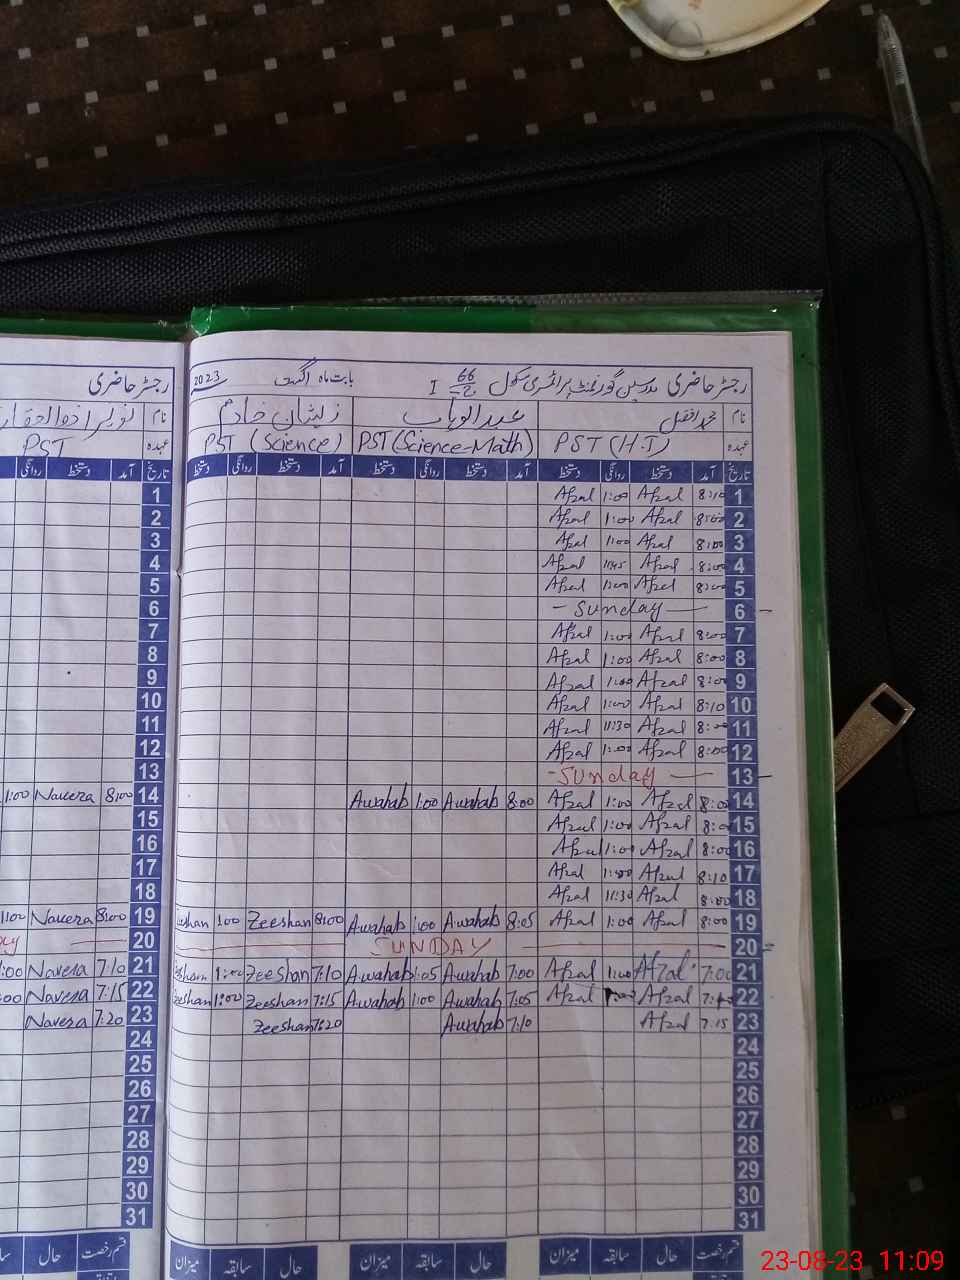 رجسٹر حاضری مدرسین گورنمنٹ پرائمری سکول 66 I بابت ماہ اگست 2023
رجسٹر حاضری
نام محمد افضل عبدالوہاب ذیشان خادم
نام
عہدہ PST (H.I) PST (Science-Math) PST (Science)
عہدہ PST
تاریخ آمد دستخط روانگی دستخط آمد دستخط روانگی دستخط آمد دستخط روانگی دستخط
تاریخ آمد دستخط روانگی
1 8:10 Afzal 1:00 Afzal
1
2 8:00 Afzal 1:00 Afzal
2
3 8:00 Afzal 1:00 Afzal
3
4 8:00 Afzal 11:45 Afzal
4
5 8:00 Afzal 1:00 Afzal
5
6 - Sunday -
6
7 8:00 Afzal 1:00 Afzal
7
8 8:00 Afzal 1:00 Afzal
8
9 8:00 Afzal 1:00 Afzal
9
10 8:10 Afzal 1:00 Afzal
10
11 8:00 Afzal 11:30 Afzal
11
12 8:00 Afzal 1:00 Afzal
12
13 - Sunday -
13
14 8:00 Afzal 1:00 Afzal 8:00 Awahab 1:00 Awahab
14 8:00 Navera 1:00
15 8:00 Afzal 1:00 Afzal
15
16 8:00 Afzal 1:00 Afzal
16
17 8:10 Afzal 1:00 Afzal
17
18 8:00 Afzal 11:30 Afzal
18
19 8:00 Afzal 1:00 Afzal 8:05 Awahab 1:00 Awahab 8:00 Zeeshan 1:00 Zeeshan
19 8:00 Navera 1:00
20 SUNDAY
20
21 7:00 Afzal 1:00 Afzal 7:00 Awahab 1:05 Awahab 7:10 Zeeshan 1:00
21 7:10 Navera 1:00
22 Afzal 1:00 Afzal 7:05 Awahab 1:00 Awahab 7:15 Zeeshan 1:00 Zeeshan
22 7:15 Navera 1:00
23 7:15 Afzal 7:10 Awahab 7:20 Zeeshan
23 7:20 Navera
24
24
25
25
26
26
27
27
28
28
29
29
30
30
31
31
قسم رخصت حال سابقہ میزان حال سابقہ میزان حال سابقہ میزان
قسم رخصت حال
23-08-23 11:09